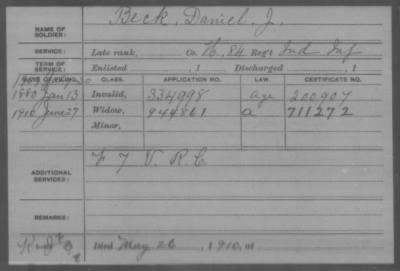 NAME OF SOLDIER: Beck, Daniel, J.
SERVICE: Late rank, Co. H, 84 Reg't Ind Inf
TERM OF SERVICE: Enlisted , 1 Discharged , 1
DATE OF FILING. CLASS. APPLICATION NO. LAW. CERTIFICATE NO.
1880 Jan 13 Invalid, 334998 age 200907
1910 June 27 Widow, 944861 a 711272
Minor,
ADDITIONAL SERVICES: F 7 V. R. C
REMARKS:
Died May 26, 1910, at